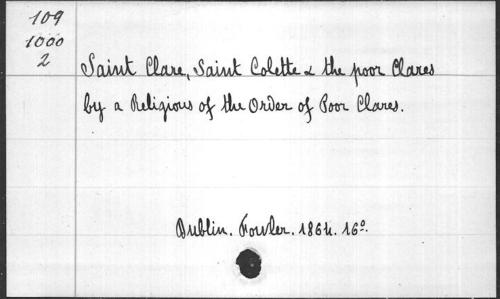 109
1000
2
Saint Clare, Saint Colette & the poor Clares
by a Religious of the Order of Poor Clares.
Dublin. Fowler. 1864. 16º.